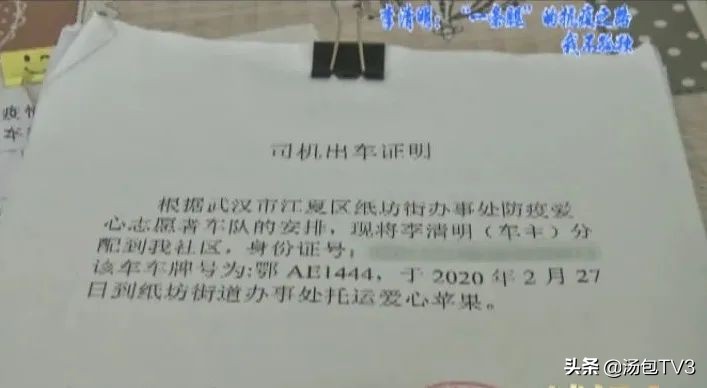 李清明："一条腿"的抗疫之路
我不孤独
疫情
车
司机出车证明
根据武汉市江夏区纸坊街办事处防疫爱
心志愿者车队的安排，现将李清明（车主）分
配到我社区，身份证号：
该车车牌号为:鄂 AE1444，于 2020 年 2 月 27
日到纸坊街道办事处托运爱心苹果。
头条 @汤包TV3